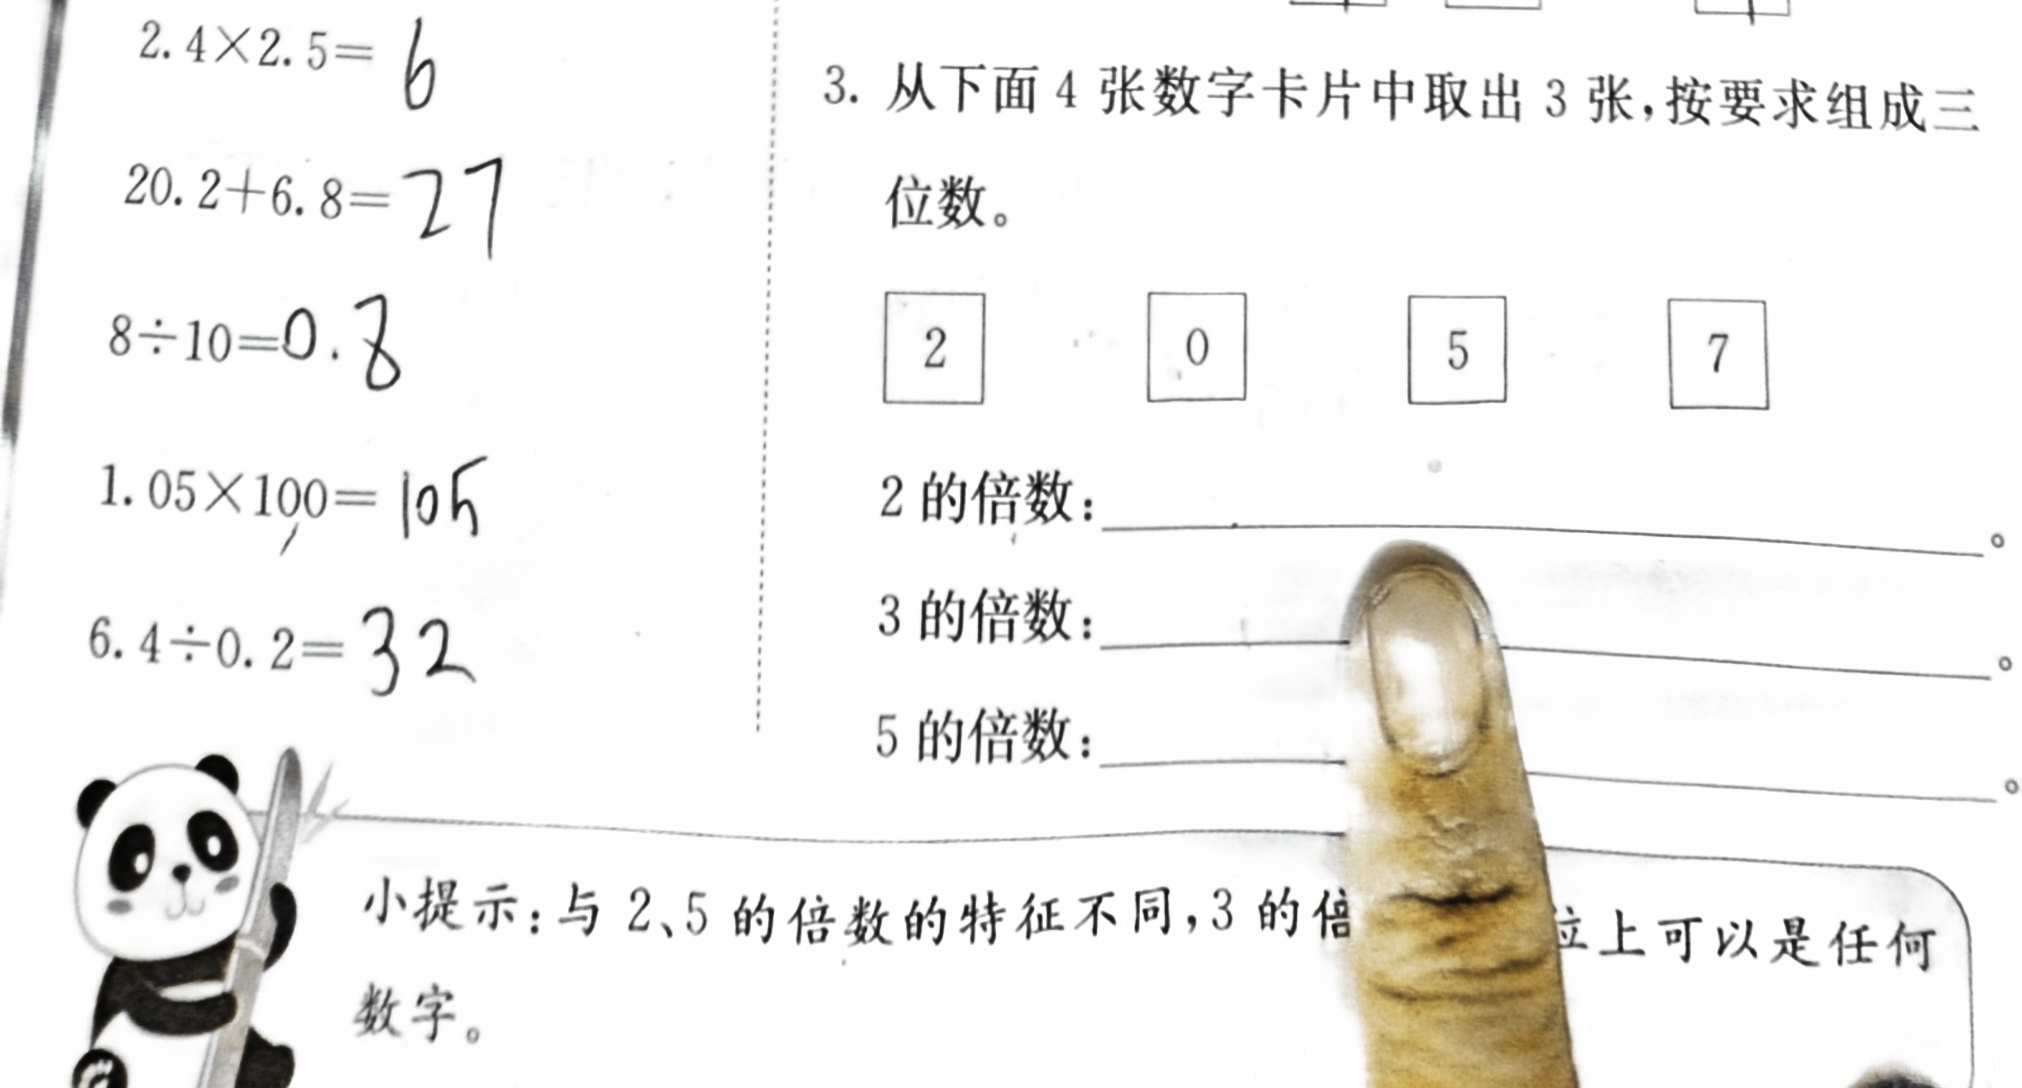 2.4×2.5=6
20.2+6.8=27
8÷10=0.8
1.05×100=105
6.4÷0.2=32
3. 从下面 4 张数字卡片中取出 3 张,按要求组成三
位数。
2 0 5 7
2 的倍数:。
3 的倍数:。
5 的倍数:。
小提示:与 2、5 的倍数的特征不同,3 的倍 上可以是任何
数字。